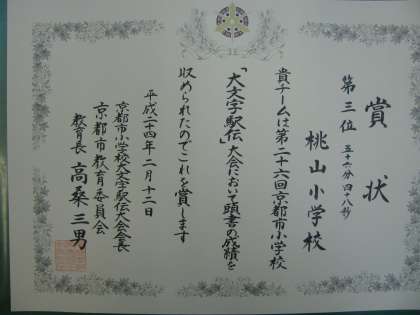 賞状
第三位 五十一分四十八秒
桃山小学校
貴チームは第二十六回京都市小学校
「大文字駅伝」大会において頭書の成績を
収められたのでこれを賞します
平成二十四年二月十二日
京都市小学校大文字駅伝大会会長
京都市教育委員会
教育長 高桑三男